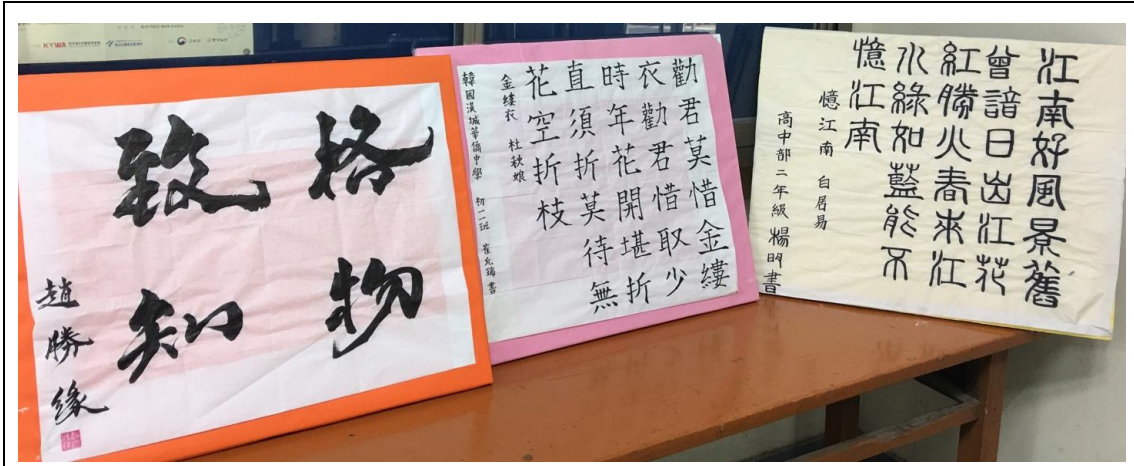 KYWA
格物
致知
趙勝緣
勸君莫惜金縷
衣勸君惜取少
時年花開堪折
直須折莫待無
花空折枝
金縷衣 杜秋娘
韓國漢城華僑中學 書
江南好風景舊
曾諳日出江花
紅勝火春來江
水綠如藍能不
憶江南
憶江南 白居易
高中部二年級 楊明書